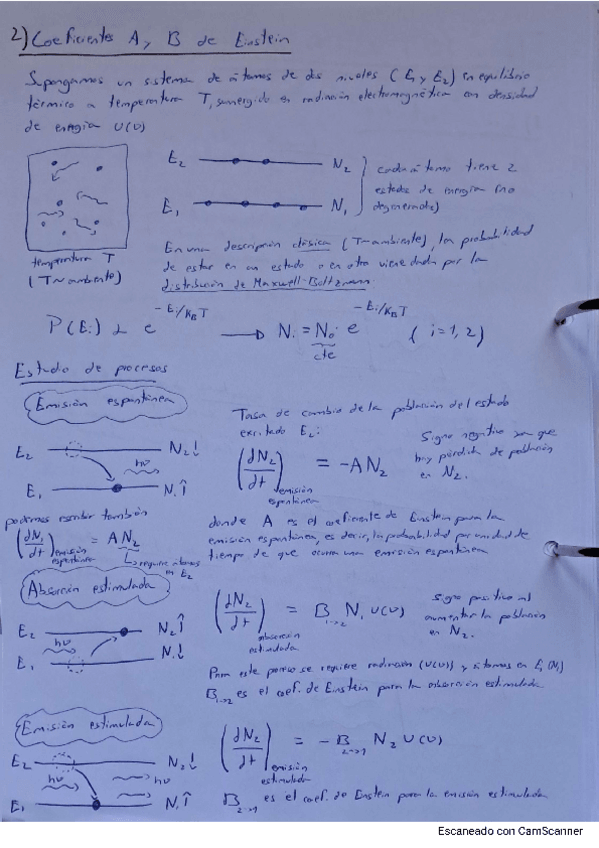 2) Coeficientes A y B de Einstein
Supongamos un sistema de átomos de dos niveles (E₁ y E₂) en equilibrio
térmico a temperatura T, sumergido en radiación electromagnética con densidad
de energía U(ν)
E₂ N₂
cada átomo tiene 2
estados de energía (no
degenerados)
E₁ N₁
temperatura T
(T~ambiente)
En una descripción clásica (T~ambiente), la probabilidad
de estar en un estado o en otro viene dada por la
distribución de Maxwell-Boltzmann:
P(Ei) α e^(-Ei/K_B T) → Ni = N₀ e^(-Ei/K_B T) (i=1,2)
cte
Estudio de procesos
Emisión espontánea
Tasa de cambio de la población del estado
excitado E₂:
E₂ N₂↓
hν
E₁ N₁↑
(dN₂/dt) emisión espontánea = -AN₂
Signo negativo ya que
hay pérdida de población
en N₂.
podemos escribir también
(dN₁/dt) emisión espontánea = AN₂
requiere átomos
en E₂
donde A es el coeficiente de Einstein para la
emisión espontánea, es decir, la probabilidad por unidad de
tiempo de que ocurra una emisión espontánea
Absorción estimulada
E₂ N₂↑
hν
E₁ N₁↓
(dN₂/dt) absorción estimulada = B₁→₂ N₁ U(ν)
Signo positivo al
aumentar la población
en N₂.
Para este proceso se requiere radiación (U(ν)) y átomos en E₁ (N₁)
B₁→₂ es el coef. de Einstein para la absorción estimulada
Emisión estimulada
E₂ N₂↓
hν hν
E₁ N₁↑
(dN₂/dt) emisión estimulada = -B₂→₁ N₂ U(ν)
B₂→₁ es el coef. de Einstein para la emisión estimulada
Escaneado con CamScanner